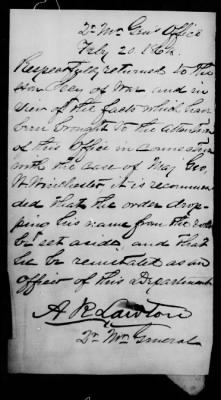 Qr Mr Genls Office
Feby 20. 1864.
Respectfully returned to the
Hon Secy of War and in
view of the facts which have
been brought to the attention
of this Office in connexion
with the case of Maj Geo,
W. Winchester it is recommen
ded that the order drop-
ping his name from the rolls
be set aside, and that
he be reinstated as an
officer of this Department
A R Lawton
Qr Mr General